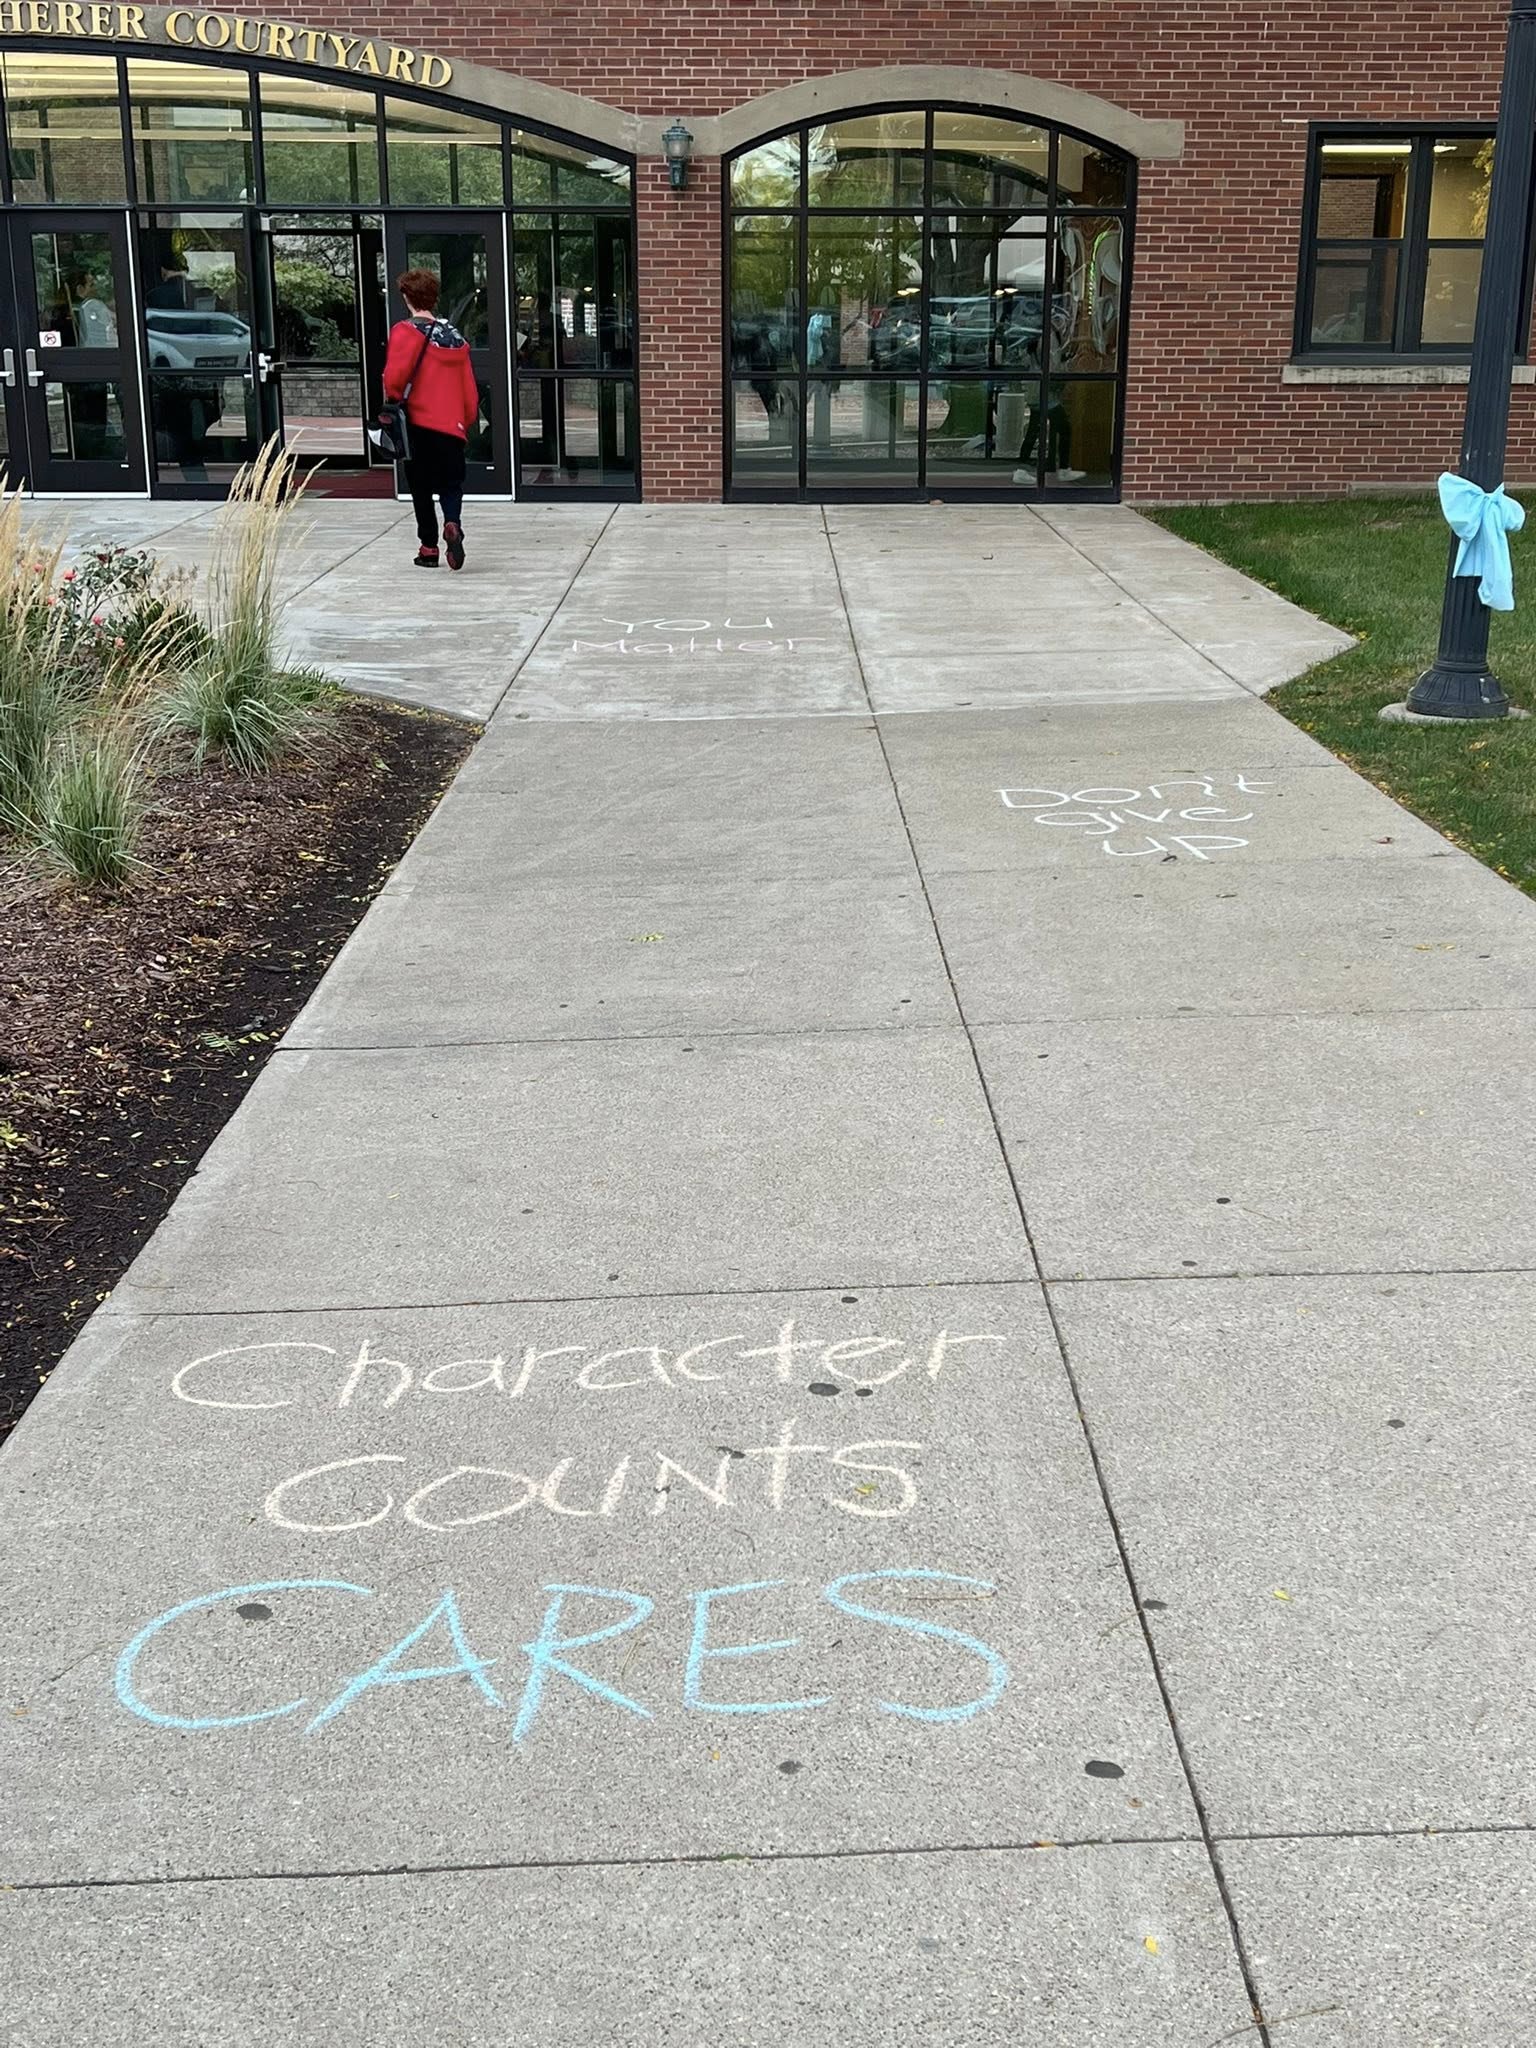 HERER COURTYARD
You
Matter
Don't
give
up
Character
Counts
CARES